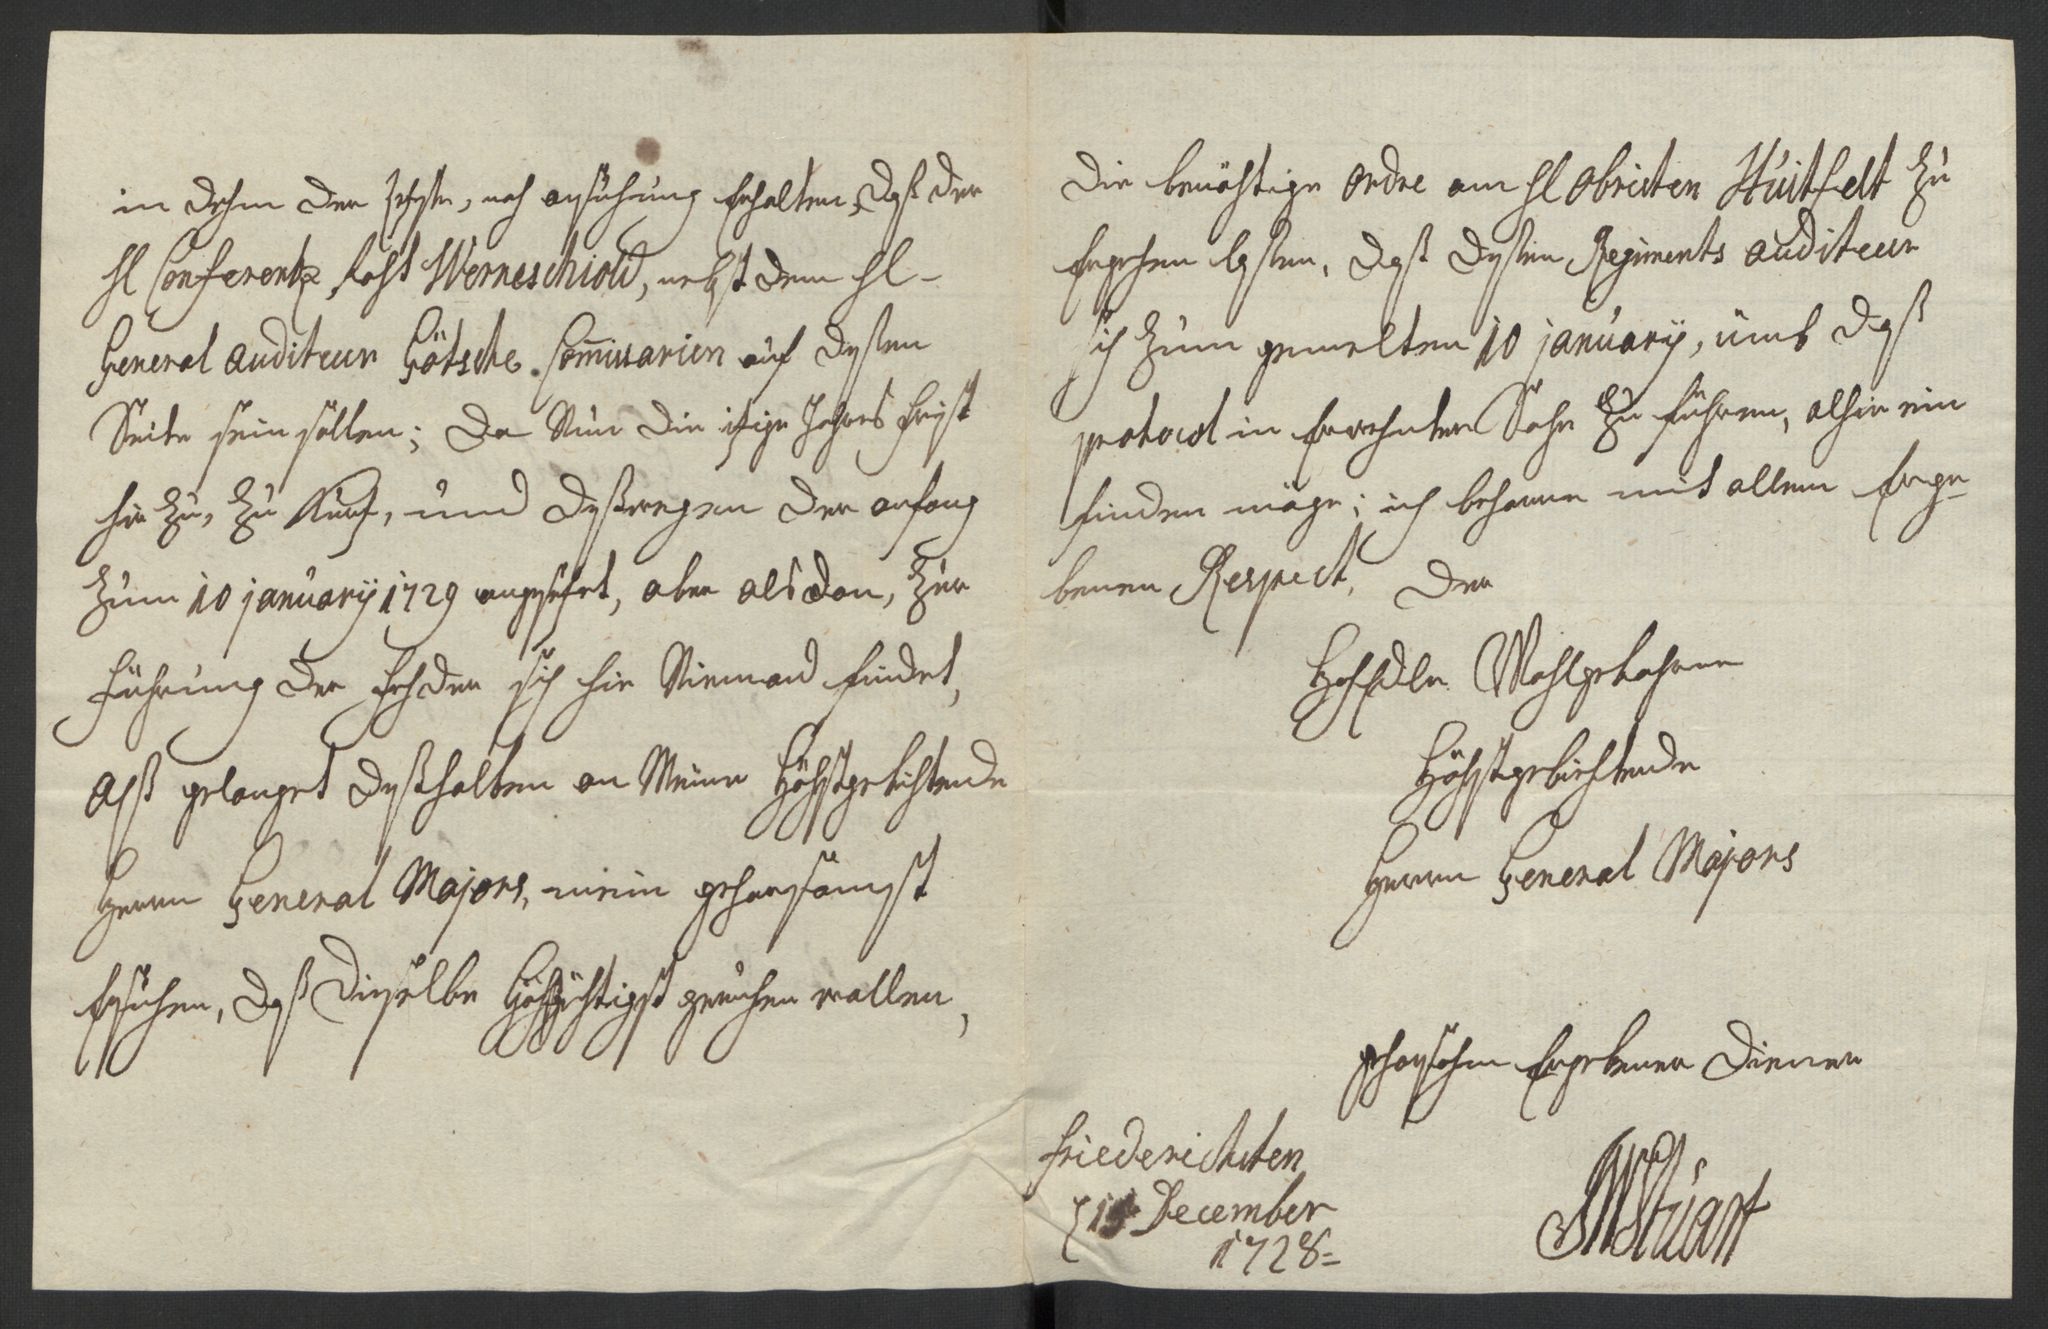 in dehm der letzte, noch anführung Erhalten, daß der
Hl Conferentz Raht Werneschiold, nebst dem Hl-
General auditeur Götsche Commissarien auf dessen
Seite sein sollen; Da Nun die itzige Jahres frist
hie zu, zu Kurtz, und deßwegen der anfang
zum 10 january 1729 angesetzt, aber alsdan, zur
führung der Fehder sich hie Niemand findet,
Alß gelanget deßhalben an Meine Höchstgebiehtende
Herrn General Majors, mein gehorsamst
Ersuchen, daß Dieselbe Hochgühtigst geruhen wollen,
die benöhtige ordre am Hl obristen Huitfelt zu
Ergehen lassen, daß dessen Regiments auditeur
sich zum gemelten 10 january, umb daß
protocol in Erwehnter Sache zu führen, alhie ein
finden möge; ich beharre mit allem Erge-
benen Respect, Der
HochEdle Wohlgebohrne
Höchstgebiehtende
Herrn General Majors
gehorsahm Ergebener Diener
Friederichsten
December
1728=
Stuart